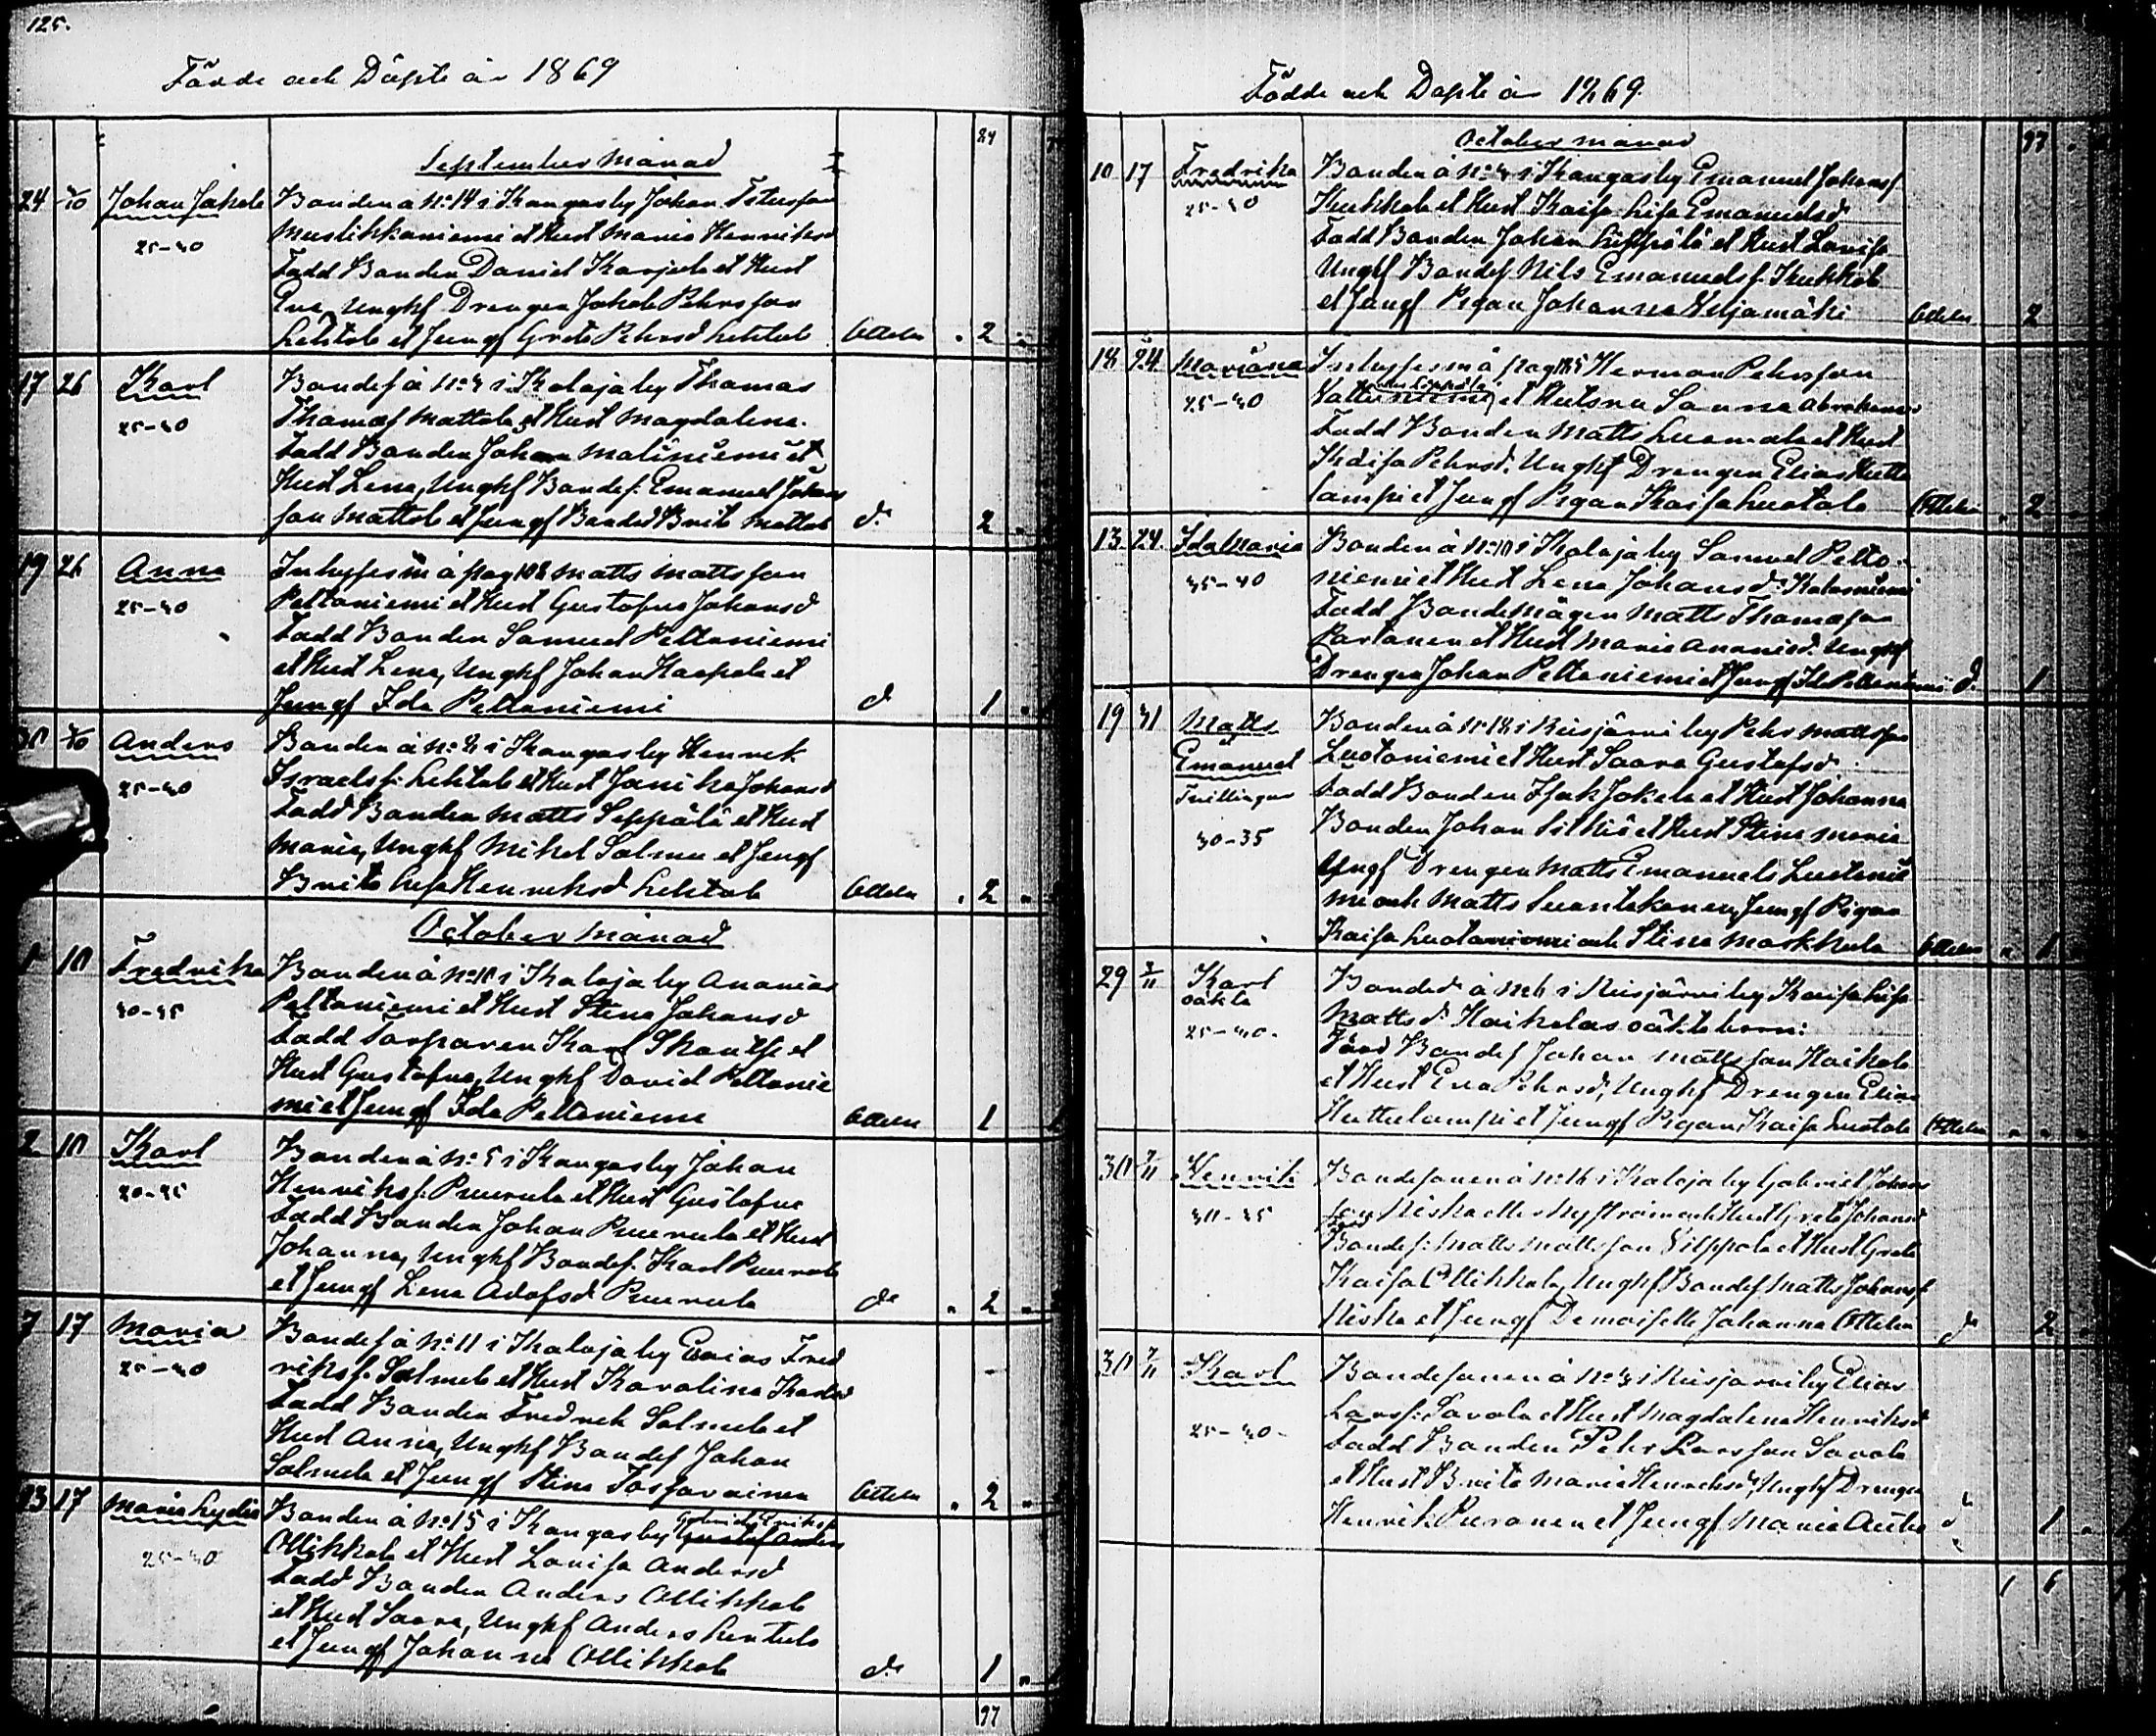 125.
Födde och Döpte år 1869
84
September Månad
24 3/10 Johan Jakob Bonden å No: 14 i Kangasby Johan Petersson
25-30 Mustikkaniemi et Hust Maria Henriksd
Fadd Bonden Daniel Karjula et Hust
Eva, Unghf Drengen Jakob Pehrsson
Lehtola et Jungf Greta Pehrsd Lehtola 2
17 26 Karl Bondes å No: 4 i Kalajaby Thomas
25-30 Thomæs Mattola et Hust Magdalena.
Fadd Bonden Johan Maliniemi et
Hust Lena, Unghf Bondes. Emanuel Johans
son Mattola et Jungf Bonded Brita Mattola do 2
19 26 Anna Inhyses m å pag 108 Matts Mattsson
25-30 Peltoniemi et Hust Gustafva Johansd
Fadd Bonden Samuel Peltoniemi
et Hust Lena, Unghf Johan Haapala et
Jungf Ida Peltoniemi do 1
30 3/10 Anders Bonden å No: 3 i Kangasby Henrik
25-30 Israelss: Lehtola et Hust Janika Johansd
Fadd Bonden Matts Seppälä et Hust
Maria, Unghf Mikel Salmu et Jungf
Brita Lisa Henriksd Lehtola 2
October Månad
1 10 Fredrika Bonden å No: 10 i Kalajaby Ananias
30-35 Peltoniemi et Hust Stina Johansd
Fadd Torparen Karl Skantze et
Hust Gustafva, Unghf David Peltonie
mi et Jungf Ida Peltoniemi 1
2 10 Karl Bonden å No: 5 i Kangasby Johan
20-25 Henrikss. Puurula et Hust Gustafva
Fadd Bonden Johan Puurula et Hust
Johanna, Unghf Bondes. Karl Puurula
et Jungf Lena Adofsd Puurula do 2
7 17 Maria Bondes å No: 11 i Kalajaby Esaias Fred
25-30 rikss. Salmela et Hust Karolina Karlsd
Fadd Bonden Fredrik Salmela et
Hust Anna, Unghf Bondes Johan
Salmela et Jungf Stina 2
13 17 Maria Lydia Bonden å No: 15 i Kangasby Gustaf Anders
25-30 Ollikkala et Hust Lovisa Andersd
Fadd Bonden Anders Ollikkala
et Hust Saara, Unghf Anders Lentula
et Jungf Johanna Ollikkala do 1
97
Födde och Döpte år 1869.
October månad 97
10 17 Fredrika Bonden å No: 4 i Kangasby Emanuel Johanss
25-30 Kukkola et Hust Kaisa Lisa Emanuelsd
Fadd Bonden Johan Seppälä et Hust Lovisa
Unghf Bondes. Nils Emanuels. Kukkola
et Jungf Pigan Johanna Heljamäki 2
18 24 Mariana Inhyses m å pag 185 Herman Pehrsson
25-30 et Hustru Sanna Abrahamsd
Fadd Bonden Matts Luomala et Hust
Kaisa Pehrsd. Unghf Drengen Elias Huttu
lampi et Jungf Pigan Kaisa Luotola 2
13 24. Ida Maria Bonden å No: 10 i Kalajaby Samuel Pelto-
35-40 niemi et Hust Lena Johansd: Kalasniemi
Fadd Bondemågen Matts Thomasson
Partanen et Hust Maria Ananisd. Unghf
Drengen Johan Peltoniemi et Jungf Ida Peltoniemi do 1
19 31 Matts Bonden å No 18 i Reisjärvi by Pehr Mattsson
Emanuel Luotoniemi et Hust Saara Gustafsd
Tvillingar Fadd Bonden Isak Jokela et Hust Johanna
30-35 Bonden Johan Silkiö et Hust Stina Maria
Ungf Drengen Matts Emanuels Luotonie
mi och Matts Jungf Pigan
Kaisa Luotoniemi och Stina Markkula 1
29 7/11 Karl Bonded å No 6 i Reisjärvi by Kaisa Lisa
oäkta Mattsd. Kaikolas oäkta barn:
25-30. Fadd Bondes Johan Mattsson Kaikola
et Hust Eva Pehrsd, Unghf Drengen Elias
Huttulampi et Jungf Pigan Kaisa Luotola
30 7/11 Henrik Bondesonen å No: 16 i Kalajaby Gabriel Johans
30-35 son Niska eller Nyström och Hust Greta Johansd
Fadd Bondes: Matts Mattsson Vilppola et Hust Greta
Kaisa Ollikkala, Unghf Bondes Matts Johanss
Niska et Jungf Demoiselle Johanna do 2
30 7/11 Karl Bondesonen å No: 3 i Reisjärvi by Elias
25-30- Larss: Savola et Hust Magdalena Henriksd
Fadd Bonden Pehr Larsson Savola
et Hust Brita Maria Henriksd, Unghf Drengen
Henrik Puranen et Jungf Maria do 1
1 6